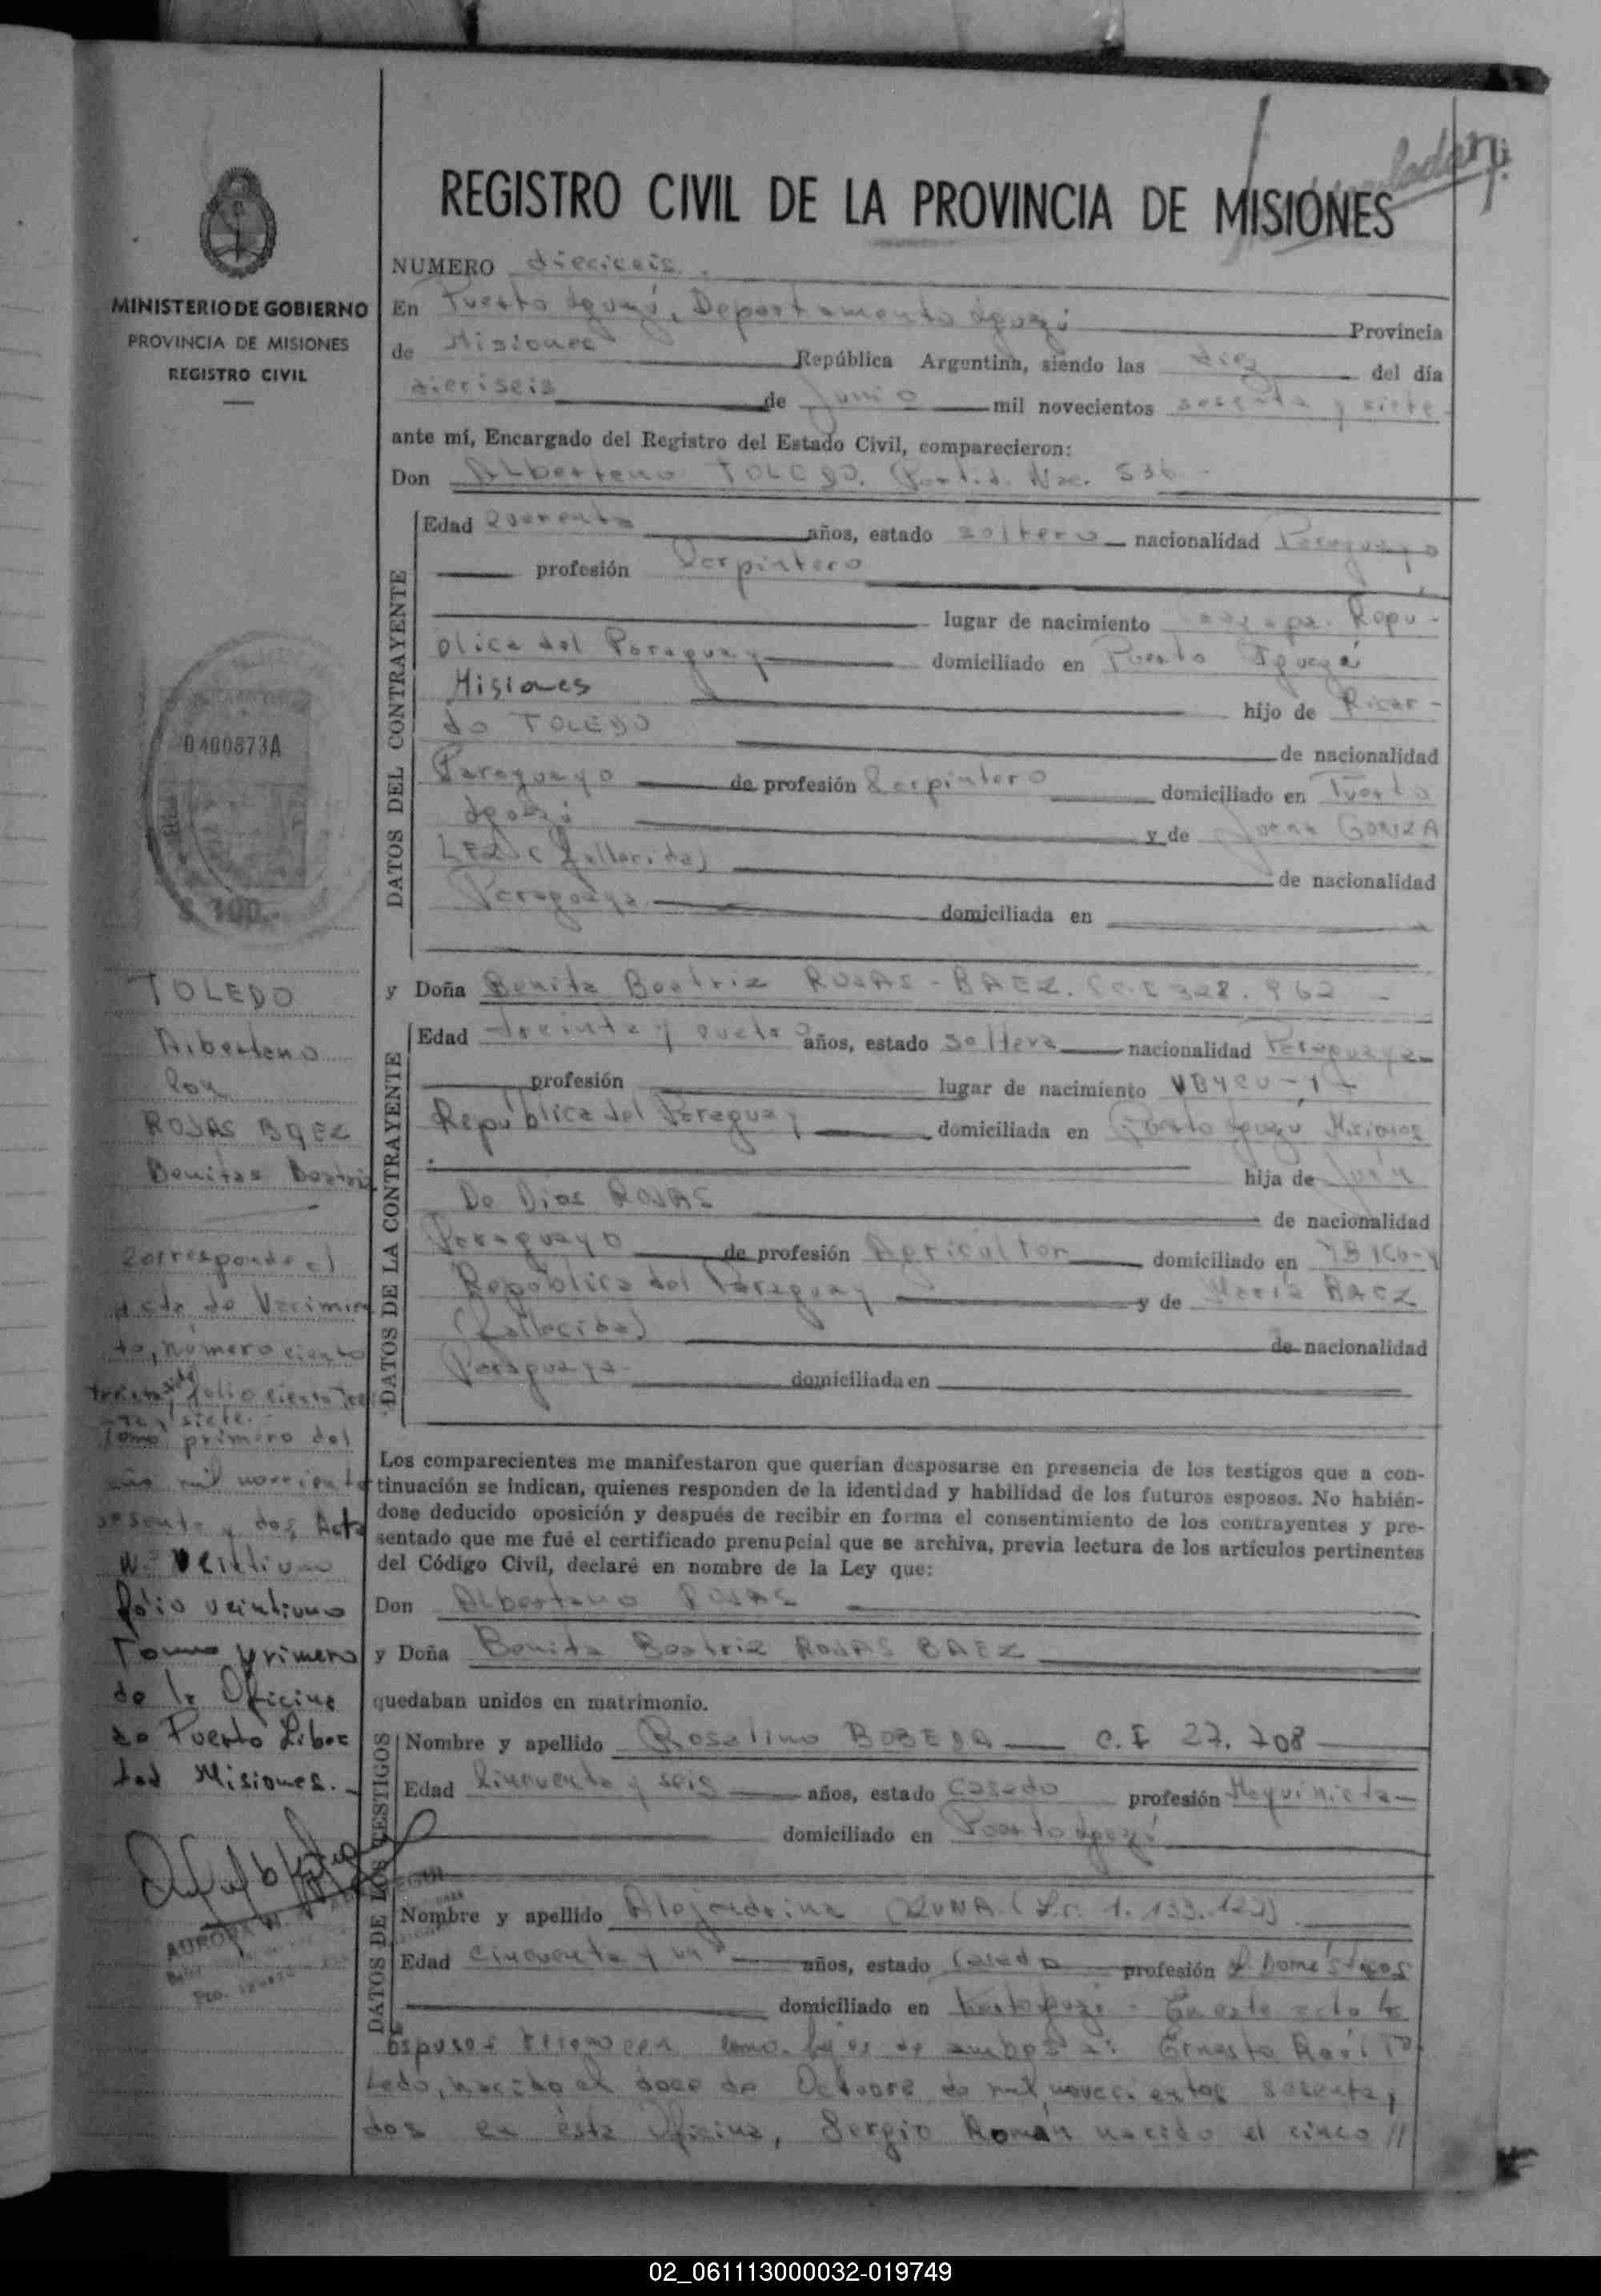 REGISTRO CIVIL DE LA PROVINCIA DE MISIONES
MINISTERIO DE GOBIERNO
PROVINCIA DE MISIONES
REGISTRO CIVIL
0400873A
$ 100.-
TOLEDO
Alberteno
con
ROJAS BAEZ
Benitas Beatriz
Corresponde al
Acta de Nacimien
to, número ciento
treinta y siete folio ciento trein
ta y siete.-
Tomo primero del
año mil novecientos
sesenta y dos Acta
Nº Veintiuno
folio veintiuno
Tomo primero
de la Oficina
de Puerto Liber
tad Misiones.-
NUMERO dieciseis.
En Puerto Iguazú, Departamento Iguazú Provincia
de Misiones República Argentina, siendo las diez del día
dieciseis de Junio mil novecientos sesenta y siete
ante mí, Encargado del Registro del Estado Civil, comparecieron:
Don Alberteno TOLEDO. Part. d. Nac. 536
DATOS DEL CONTRAYENTE
Edad Cuarenta años, estado soltero nacionalidad Paraguayo
profesión Carpintero
lugar de nacimiento Repú-
blica del Paraguay domiciliado en Puerto Iguazú
Misiones hijo de Ricar-
do TOLEDO de nacionalidad
Paraguayo de profesión Carpintero domiciliado en Puerto
Iguazú y de Juana GONZA
LEZ (fallecida) de nacionalidad
Paraguaya domiciliada en
y Doña Benita Beatriz ROJAS-BAEZ. 328.962
DATOS DE LA CONTRAYENTE
Edad treinta y años, estado soltera nacionalidad Paraguaya
profesión lugar de nacimiento
República del Paraguay domiciliada en Puerto Iguazú Misiones
hija de Juan
De Dios ROJAS de nacionalidad
Paraguayo de profesión Agricultor domiciliado en
República del Paraguay y de María BAEZ
(fallecida) de nacionalidad
Paraguaya domiciliada en
Los comparecientes me manifestaron que querían desposarse en presencia de los testigos que a con-
tinuación se indican, quienes responden de la identidad y habilidad de los futuros esposos. No habién-
dose deducido oposición y después de recibir en forma el consentimiento de los contrayentes y pre-
sentado que me fué el certificado prenupcial que se archiva, previa lectura de los artículos pertinentes
del Código Civil, declaré en nombre de la Ley que:
Don Alberteno ROJAS
y Doña Benita Beatriz ROJAS BAEZ
quedaban unidos en matrimonio.
DATOS DE LOS TESTIGOS
Nombre y apellido Rosalino BOBEDA C.I 27.708
Edad Cincuenta y seis años, estado Casado profesión Maquinista
domiciliado en Puerto Iguazú
Nombre y apellido Alejandrina 1.133.
Edad Cincuenta y un años, estado Casada profesión Q. Domésticos
domiciliado en Puerto Iguazú - En este acto los
esposos reconocen como hijos de ambos a: Ernesto Raúl To
ledo, nacido el doce de Octubre de mil novecientos sesenta y
dos en ésta Oficina, Sergio Román nacido el cinco //
02_061113000032-019749